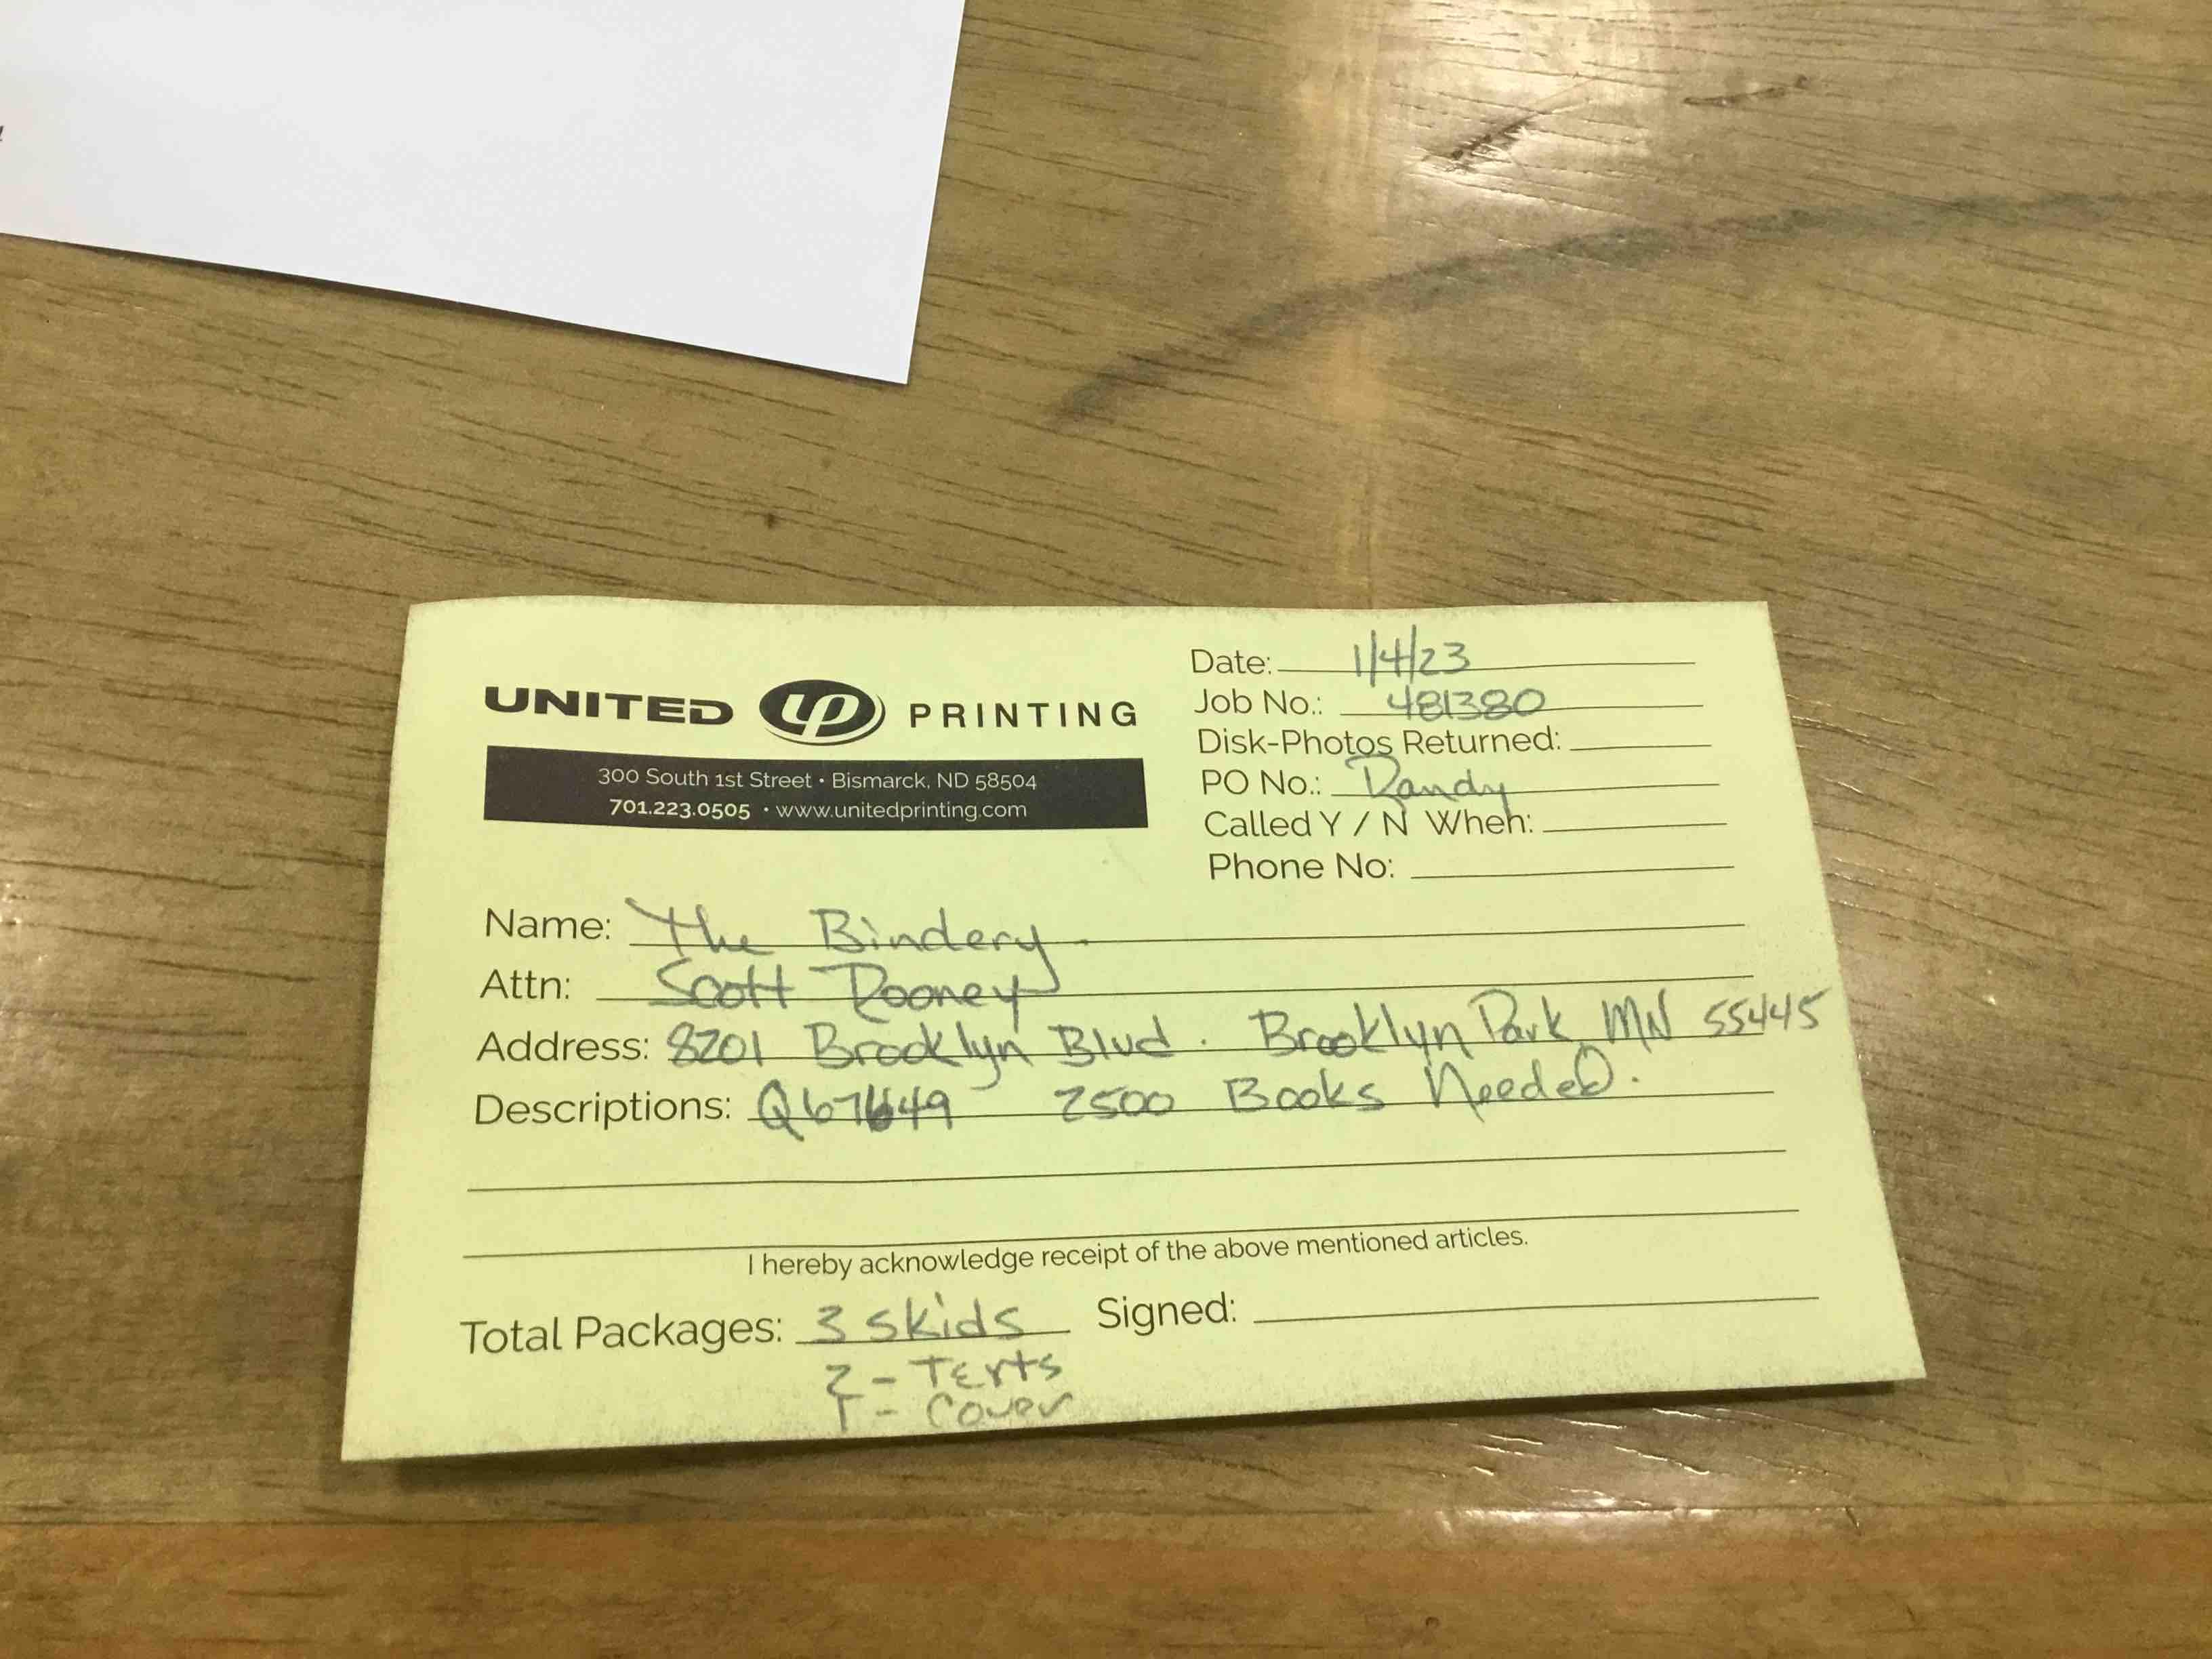 UNITED UP PRINTING
300 South 1st Street • Bismarck, ND 58504
701.223.0505 • www.unitedprinting.com
Date: 1/4/23
Job No.: 481380
Disk-Photos Returned:
PO No.: Randy
Called Y / N When:
Phone No:
Name: The Bindery
Attn: Scott Rooney
Address: 8201 Brooklyn Blvd. Brooklyn Park, MN 55445
Descriptions: Q67649 2500 Books Needed.
I hereby acknowledge receipt of the above mentioned articles.
Total Packages: 3 skids Signed:
2 - Texts
1 - Cover